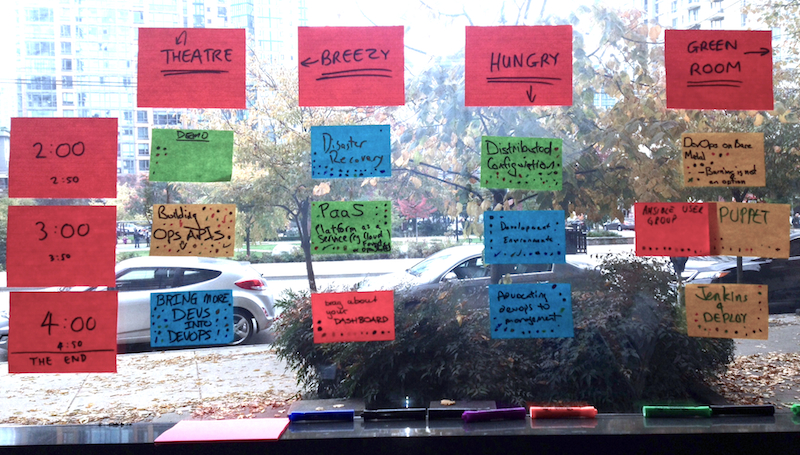 THEATRE
BREEZY
HUNGRY
GREEN
ROOM
2:00
2:50
DEMO
Disaster
Recovery
Distributed
Configuration
DevOps on Bare
Metal
- Burning is not
an option
3:00
3:50
Building
OPS APIs
PaaS
Platform as a
Service
Development
Environments
ANSIBLE USER
GROUP
PUPPET
4:00
4:50
THE END
BRING MORE
DEVS
INTO
DEVOPS
about
your
DASHBOARD
Advocating
devops to
management
Jenkins
& DEPLOY